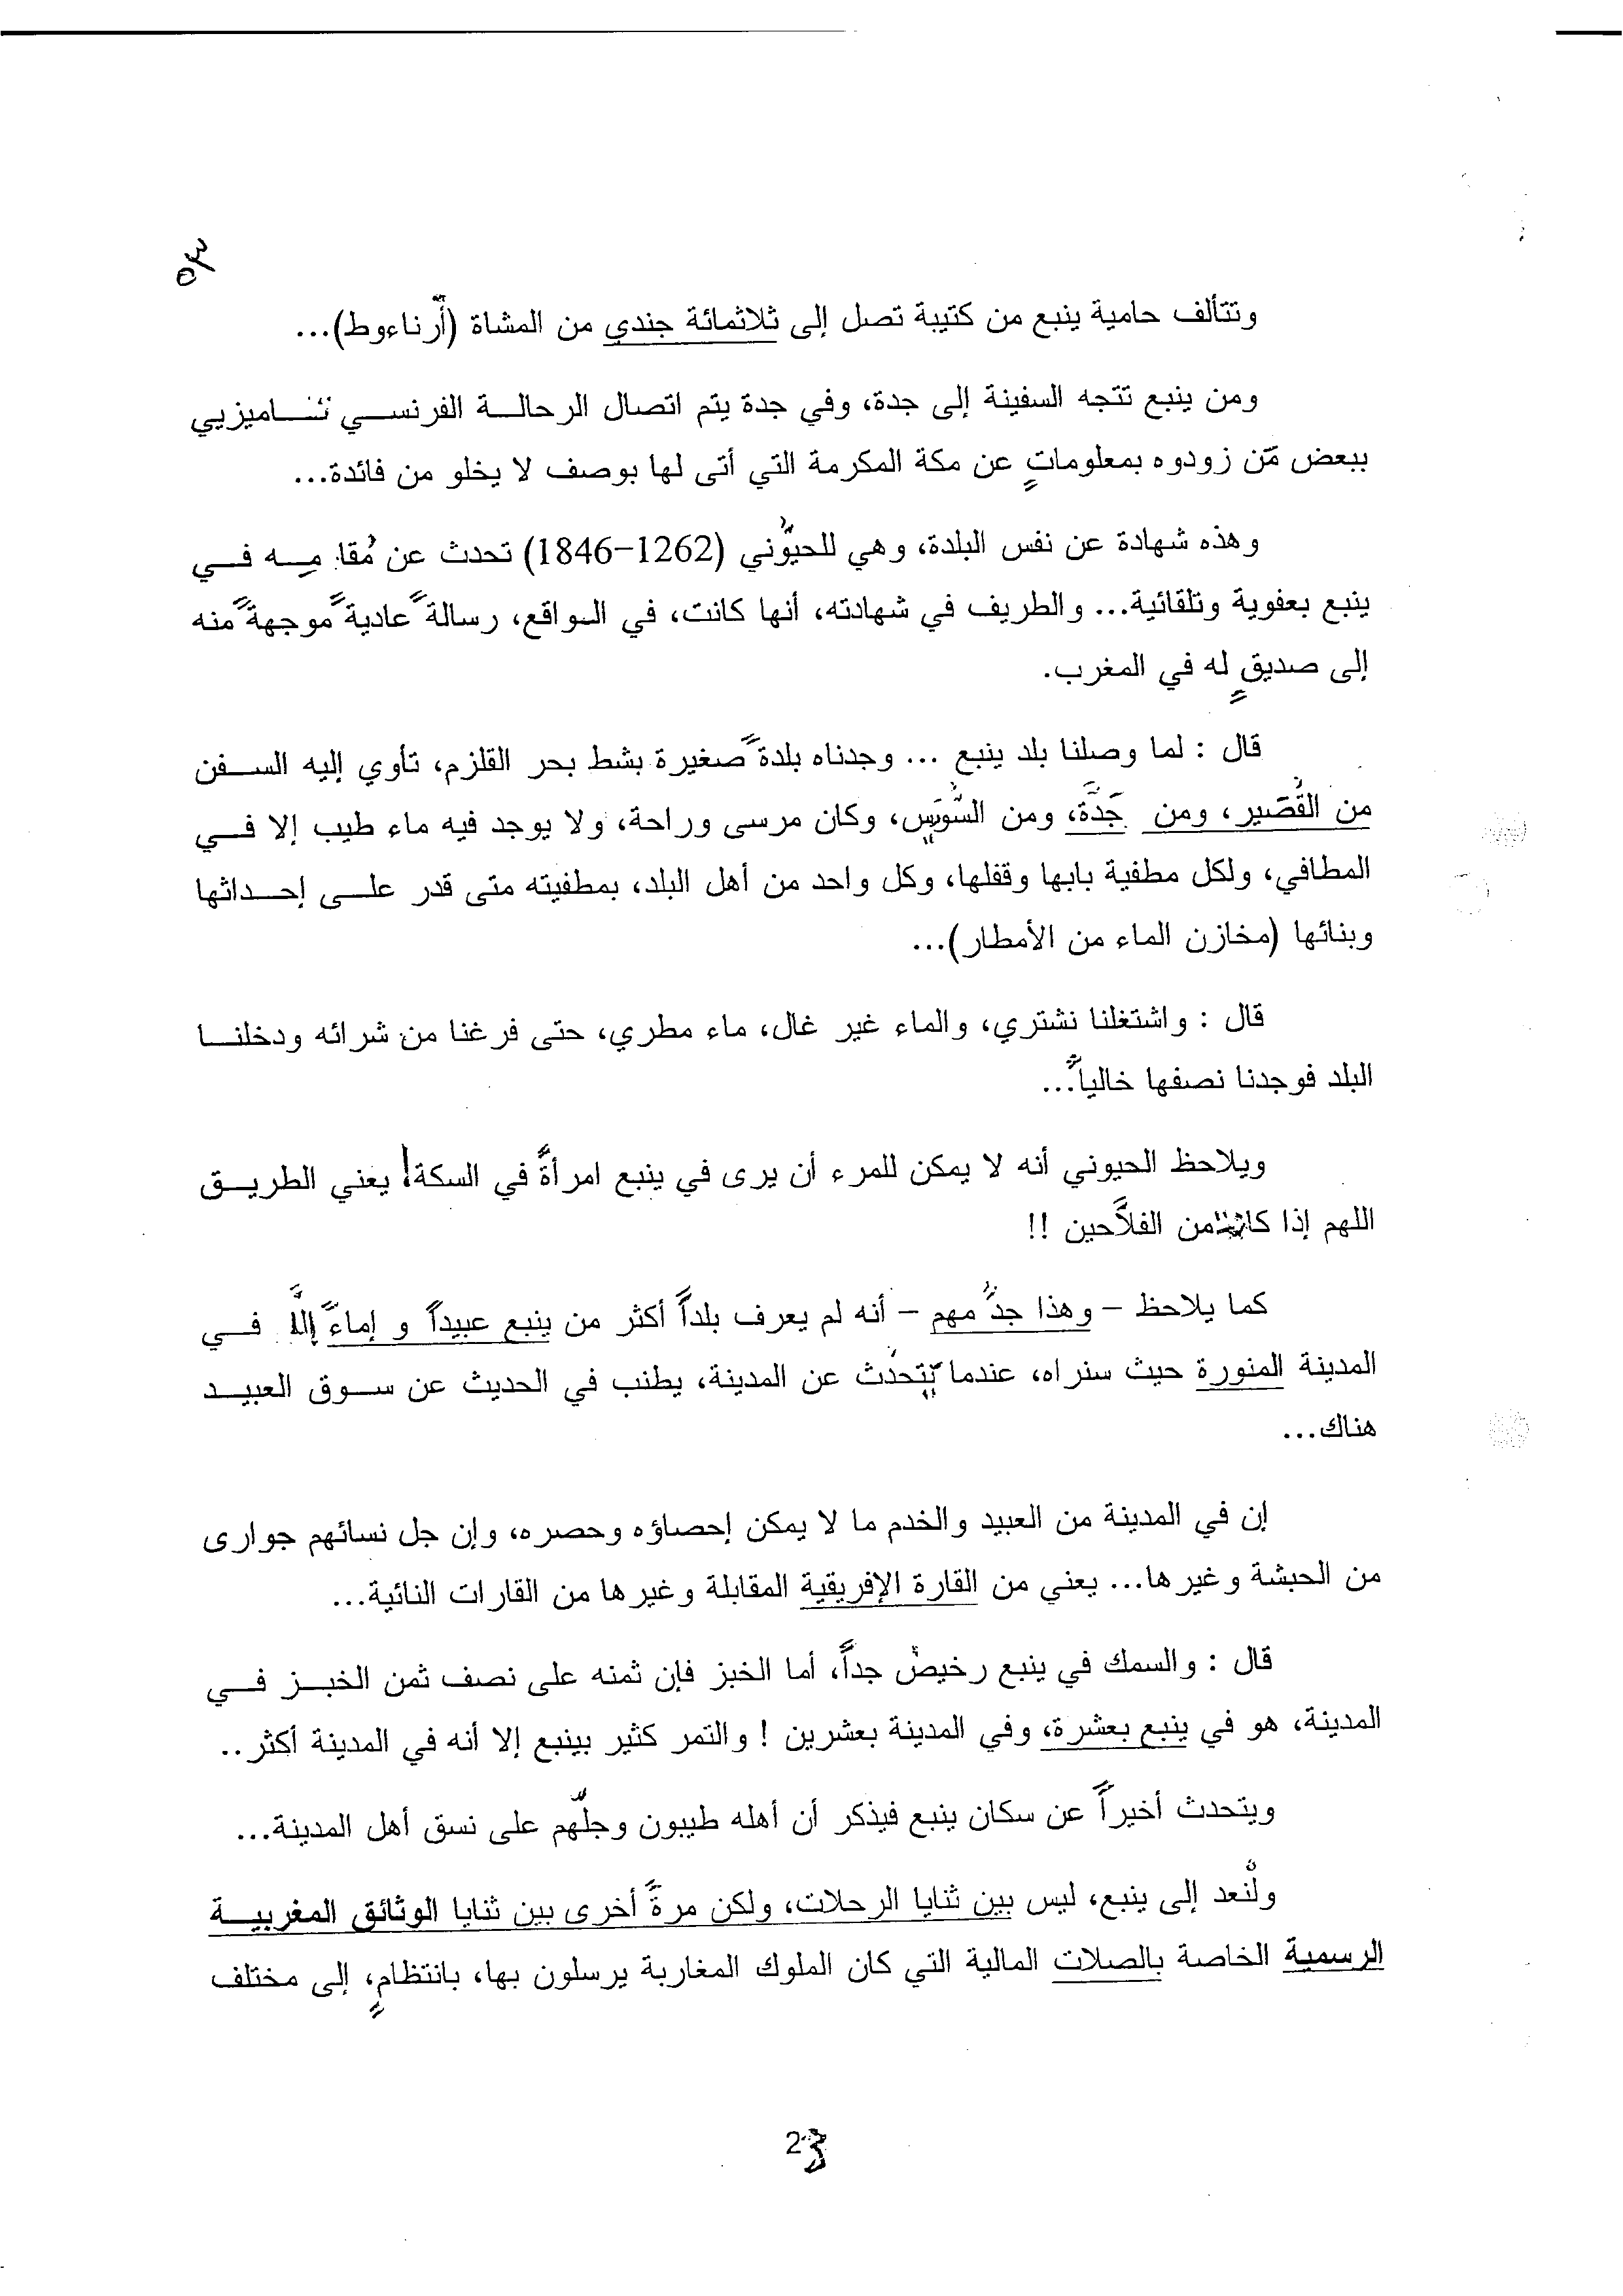 ٥٣
وتتألف حامية ينبع من كتيبة تصل إلى ثلاثمائة جندي من المشاة (أرناءوط)...
ومن ينبع تتجه السفينة إلى جدة، وفي جدة يتم اتصال الرحالــة الفرنســي تــاميزيي
ببعض مّن زودوه بمعلوماتٍ عن مكة المكرمة التي أتى لها بوصف لا يخلو من فائدة...
وهذه شهادة عن نفس البلدة، وهي للحيوّني (1262-1846) تحدث عن مُقامِـه فــي
ينبع بعفوية وتلقائية... والطريف في شهادته، أنها كانت، في الواقع، رسالةً عاديةً موجهةً منه
إلى صديقٍ له في المغرب.
قال : لما وصلنا بلد ينبع ... وجدناه بلدةً صغيرة بشط بحر القلزم، تأوي إليه الســفن
من القُصَير، ومن جَدَّة، ومن السُّوَيس، وكان مرسى وراحة، ولا يوجد فيه ماء طيب إلا فــي
المطافي، ولكل مطفية بابها وقفلها، وكل واحد من أهل البلد، بمطفيته متى قدر علــى إحــداثها
وبنائها (مخازن الماء من الأمطار)...
قال : واشتغلنا نشتري، والماء غير غال، ماء مطري، حتى فرغنا من شرائه ودخلنــا
البلد فوجدنا نصفها خالياً...
ويلاحظ الحيوني أنه لا يمكن للمرء أن يرى في ينبع امرأةً في السكة! يعني الطريــق
اللهم إذا كانت من الفلاَّحين !!
كما يلاحظ – وهذا جدُّ مهم – أنه لم يعرف بلداً أكثر من ينبع عبيداً و إماءً إلاَّ فــي
المدينة المنورة حيث سنراه، عندما يتَحدث عن المدينة، يطنب في الحديث عن ســوق العبيــد
هناك...
إن في المدينة من العبيد والخدم ما لا يمكن إحصاؤه وحصره، وإن جل نسائهم جوارى
من الحبشة وغيرها... يعني من القارة الإفريقية المقابلة وغيرها من القارات النائية...
قال : والسمك في ينبع رخيصٌ جداً، أما الخبز فإن ثمنه على نصف ثمن الخبــز فــي
المدينة، هو في ينبع بعشرة، وفي المدينة بعشرين ! والتمر كثير بينبع إلا أنه في المدينة أكثر..
ويتحدث أخيراً عن سكان ينبع فيذكر أن أهله طيبون وجلّهم على نسق أهل المدينة...
ولْنعد إلى ينبع، ليس بين ثنايا الرحلات، ولكن مرةً أخرى بين ثنايا الوثائق المغربيــة
الرسمية الخاصة بالصلات المالية التي كان الملوك المغاربة يرسلون بها، بانتظامٍ، إلى مختلف
23